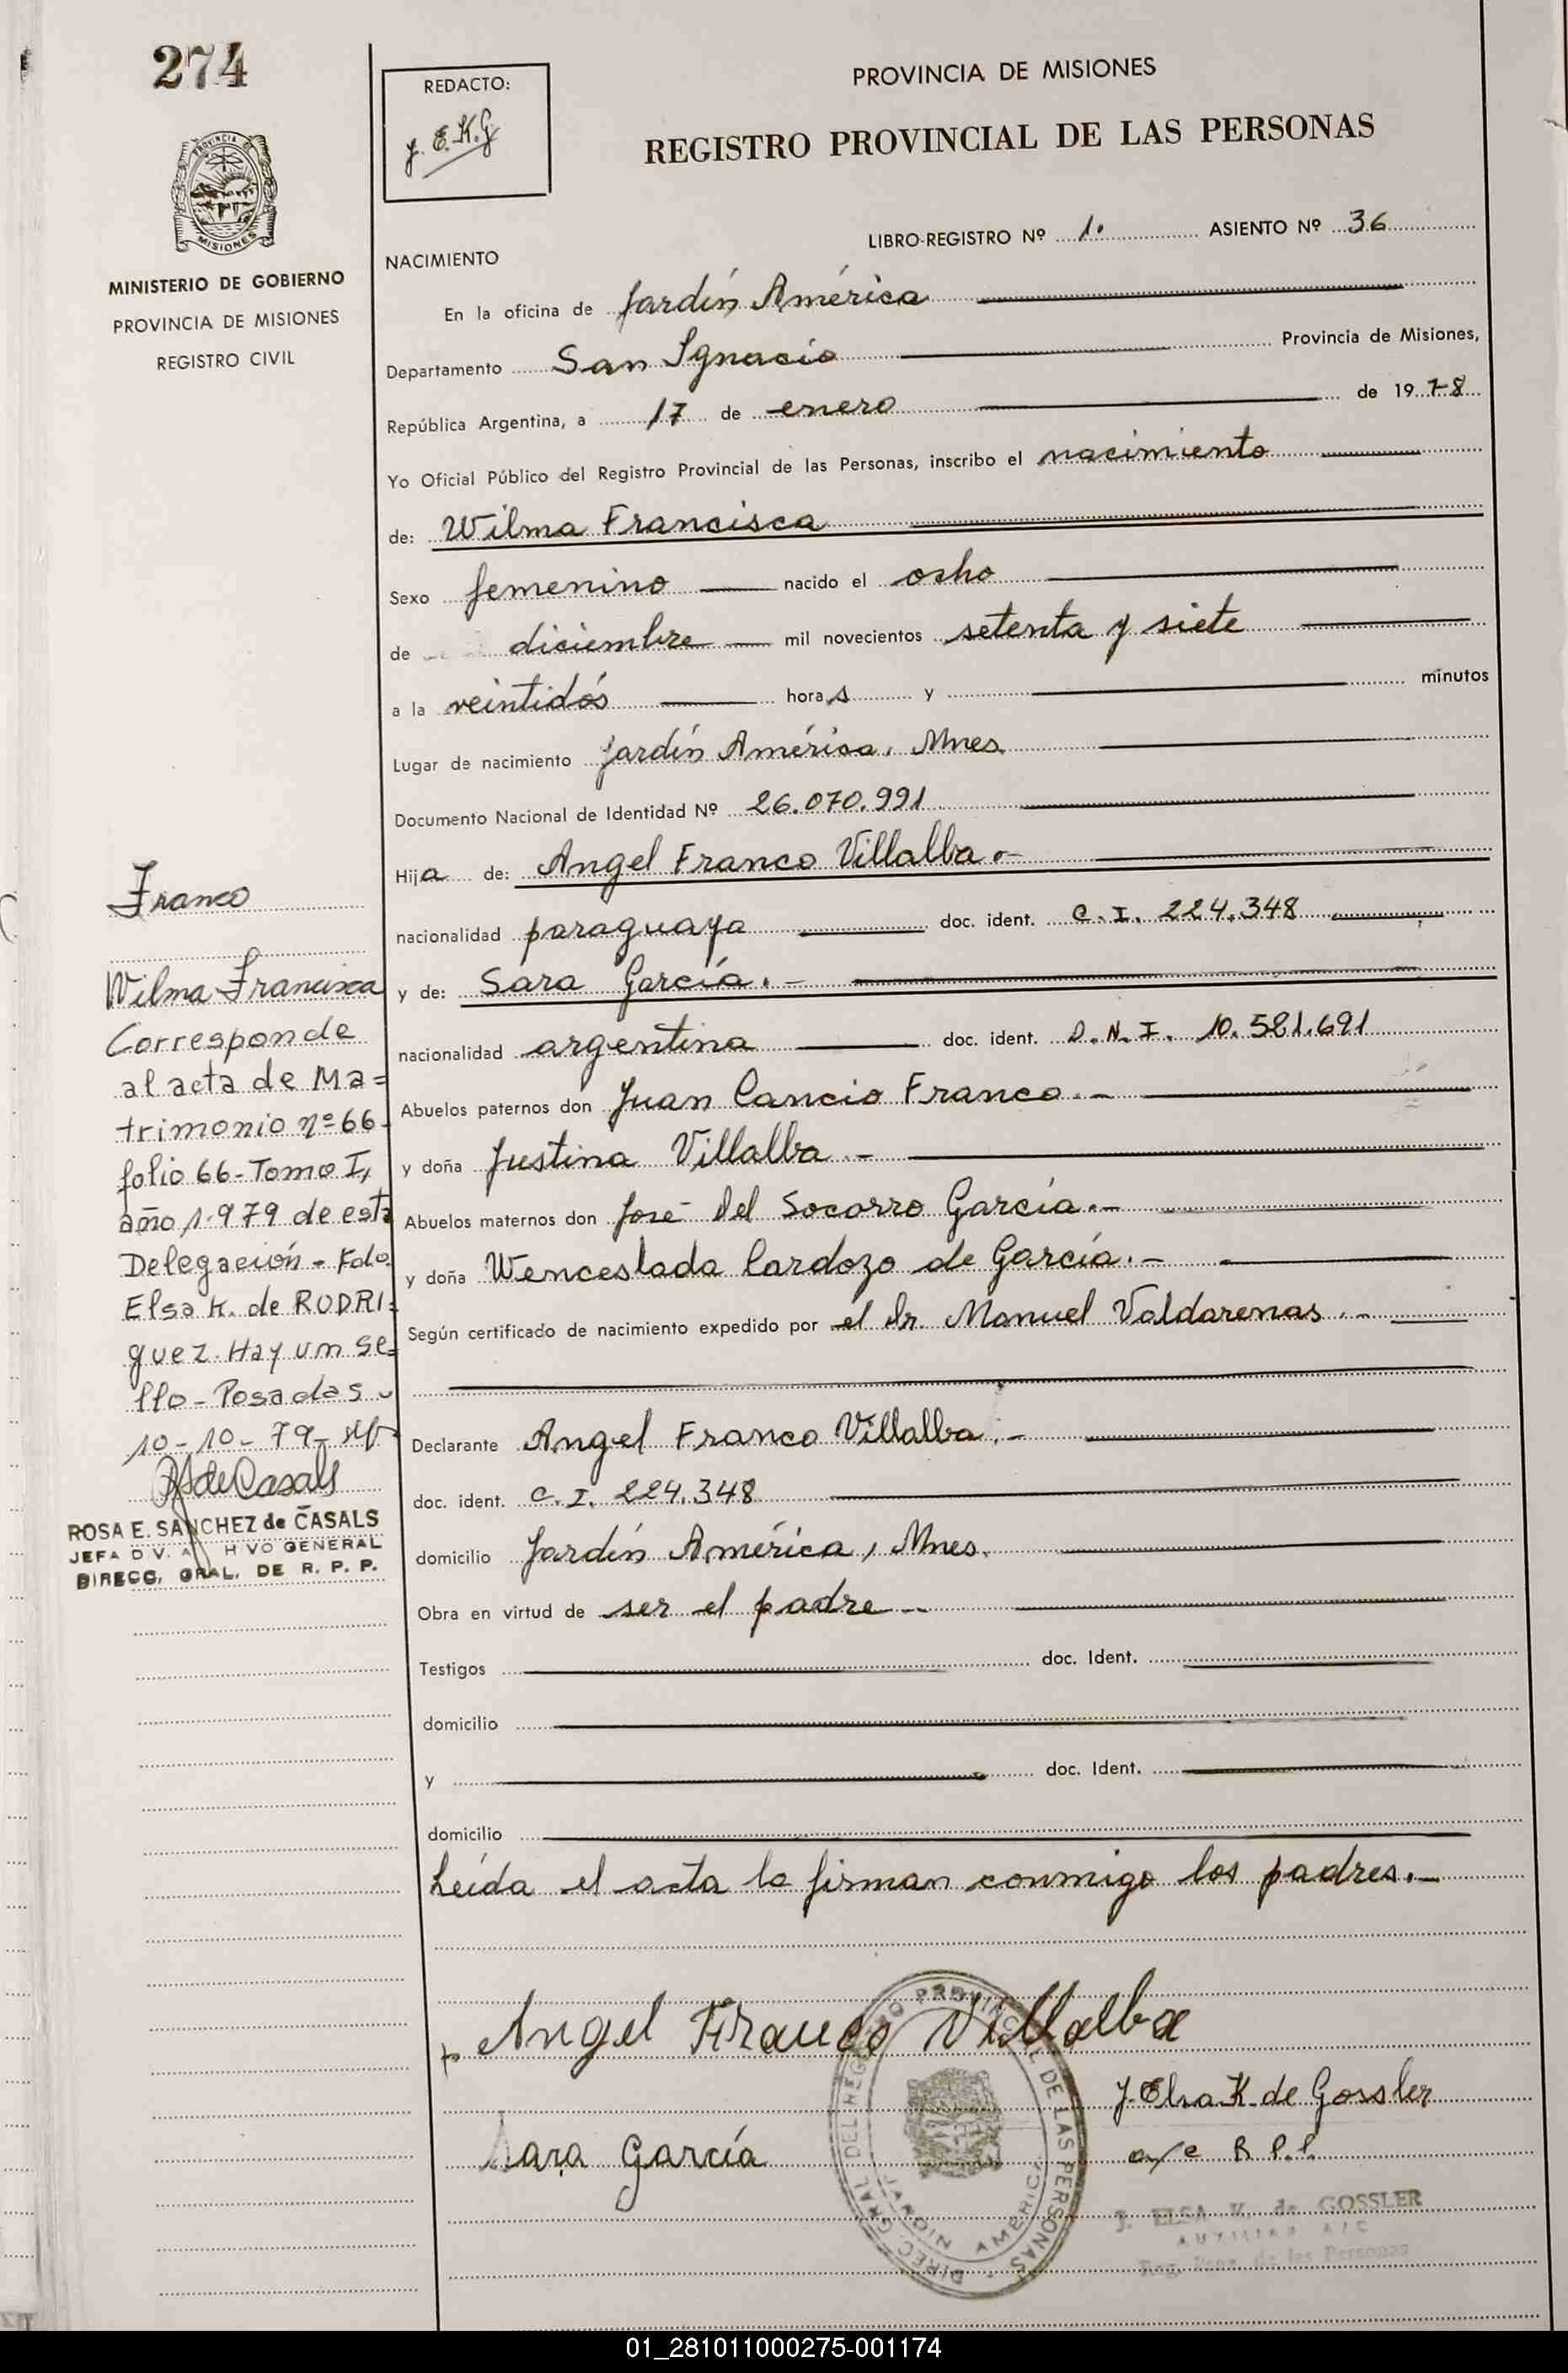 274
REDACTO:
J. E. K. G
PROVINCIA DE MISIONES
REGISTRO PROVINCIAL DE LAS PERSONAS
PROVINCIA DE
MISIONES
MINISTERIO DE GOBIERNO
PROVINCIA DE MISIONES
REGISTRO CIVIL
LIBRO-REGISTRO Nº 1. ASIENTO Nº 36
NACIMIENTO
En la oficina de Jardín América
Departamento San Ignacio Provincia de Misiones,
República Argentina, a 17 de enero de 1978
Yo Oficial Público del Registro Provincial de las Personas, inscribo el nacimiento
de: Wilma Francisca
Sexo femenino nacido el ocho
de diciembre mil novecientos setenta y siete
a la veintidós horas y minutos
Lugar de nacimiento Jardín América, Mnes
Documento Nacional de Identidad Nº 26.070.991
Hija de: Angel Franco Villalba.-
nacionalidad paraguaya doc. ident. C.I. 224.348
y de: Sara García.-
nacionalidad argentina doc. ident. D.N.I. 10.581.691
Abuelos paternos don Juan Cancio Franco.-
y doña Justina Villalba.-
Abuelos maternos don José Del Socorro García.-
y doña Wenceslada Cardozo de García.-
Según certificado de nacimiento expedido por el Dr. Manuel Valdarenas.-
Declarante Angel Franco Villalba.-
doc. ident. C.I. 224.348
domicilio Jardín América, Mnes.
Obra en virtud de ser el padre.-
Testigos doc. Ident.
domicilio
y doc. Ident.
domicilio
Leída el acta la firman conmigo los padres.-
Franco
Wilma Francisca
Corresponde
al acta de Ma=
trimonio nº 66-
folio 66-Tomo I,
año 1.979 de esta
Delegación - Fdo.
Elsa K. de RODRI=
guez. Hay un se=
llo - Posadas
10-10-79-
RSdeCasals
ROSA E. SANCHEZ de CASALS
JEFA DIV. ARCHIVO GENERAL
DIRECC. GRAL. DE R. P. P.
Angel Franco Villalba
J. Elsa K. de Gossler
Sara García
a/c R.P.P.
DIREC. GRAL. DEL REGISTRO PROVINCIAL DE LAS PERSONAS
JARDIN AMERICA
J. ELSA K. de GOSSLER
AUXILIAR A/C
Reg. Prov. de las Personas
01_281011000275-001174